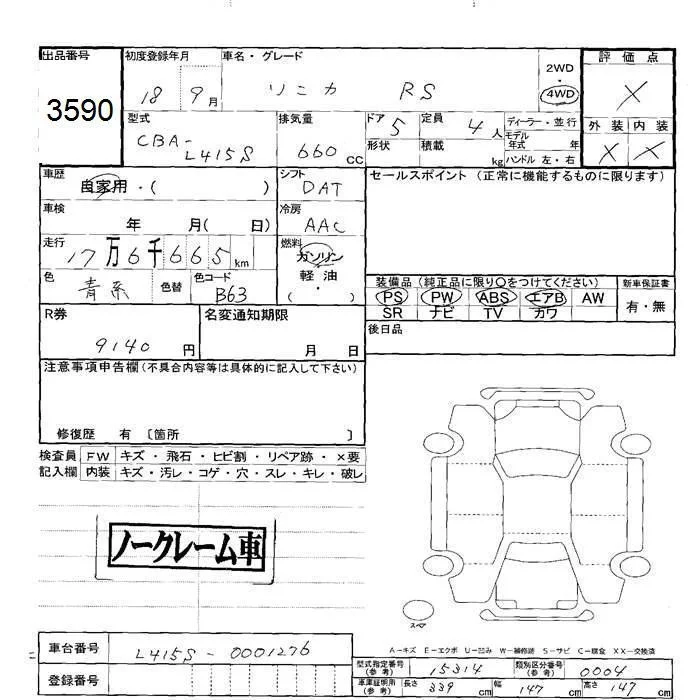 出品番号 初度登録年月 車名・グレード 2WD ・ 4WD 評価点
3590 18 9月 ソニカ RS X
型式 排気量 ドア 定員 ディーラー・並行 外装 内装
CBA-L415S 660cc 5 4人 モデル年式 年 X X
形状 積載 kg ハンドル 左・右
車歴 自家用・( ) シフト DAT セールスポイント(正常に機能するものに限ります)
車検 年 月( 日) 冷房 AAC
走行 17万6千665km 燃料 ガソリン 軽油 ・( )
色 青系 色替 色コード B63 装備品(純正品に限り○をつけてください) 新車保証書
PS PW ABS エアB AW 有・無
SR ナビ TV カワ
R券 9140円 名変通知期限 月 日 後日品
注意事項申告欄(不具合内容等は具体的に記入して下さい)
修復歴 有 〔箇所 〕
検査員 FW キズ・飛石・ヒビ割・リペア跡・×要
記入欄 内装 キズ・汚レ・コゲ・穴・スレ・キレ・破レ
ノークレーム車
スペア
A-キズ E-エクボ U-凹み W-補修跡 S-サビ C-腐食 XX-交換済
車台番号 L415S-0001276 型式指定番号(参考) 15314 類別区分番号(参考) 0004
登録番号 車庫証明用(参考) 長さ 339cm 幅 147cm 高さ 147cm